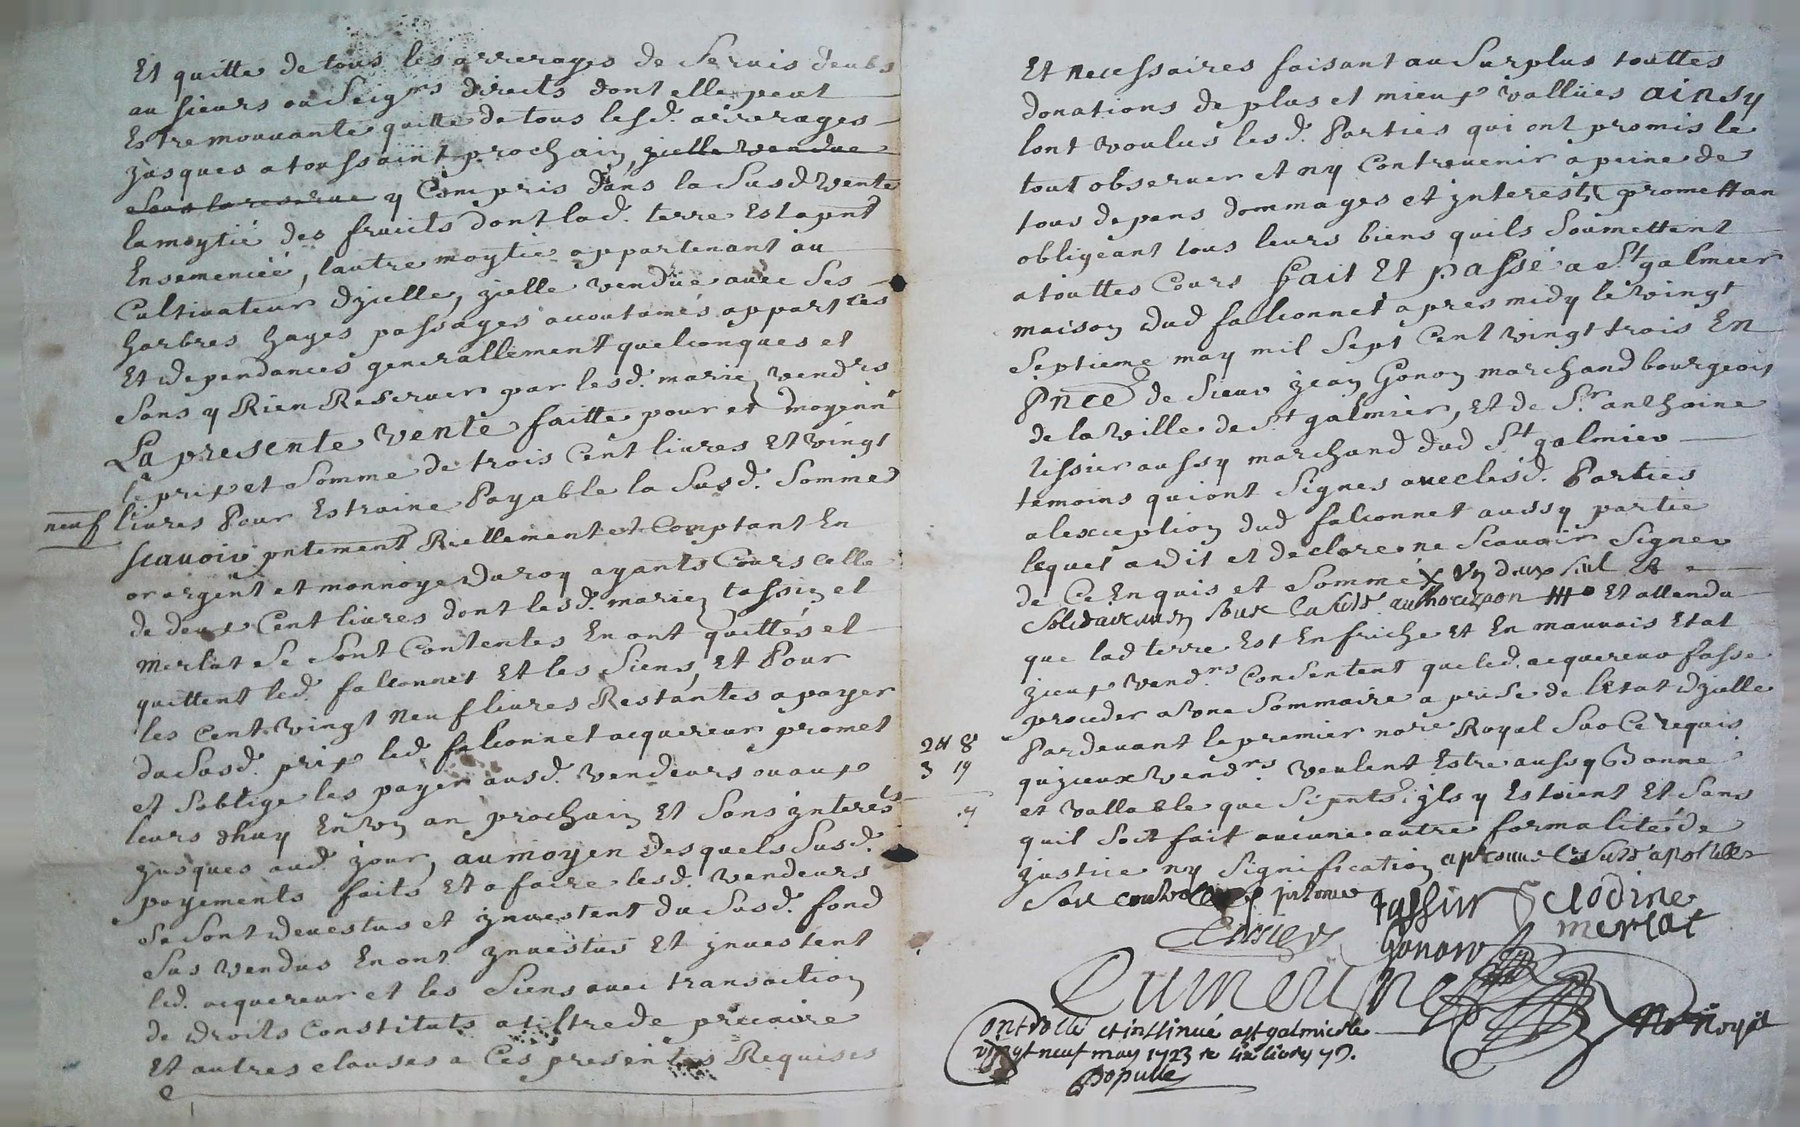 Et quitte de tous les arrerages de Servis deubs
au sieurs ou Seigrs directs dont elle peut
Estre mouvante quitte de tous lesd. arrerages
jusques a toussaint prochain, jcelle vendue
Sous la reserve y Compris dans la Susd Vente
la moytié des fruits dont lad. terre Est apnt
Ensemencée, lautre moytie appartenant au
Cultivateur djcelle, jcelle vendue avec Ses
harbres hayes passages accoutumés appartces
Et dependances generallement quelconques et
Sans y Rien Reserver par lesd. mariez vendrs
La presente vente faitte pour et moyennt
le prix et Somme de trois Cent livres Et vingt
neuf livres Pour Estraine Payable la Susd. Somme
scavoir pntement Reellement et Comptant En
or argent et monnoye du roy ayants Cours celle
de deux Cent livres dont lesd. mariez tassin et
merlat Se Sont Contentes En ont quittés et
quittent led. falconnet Et les Siens, Et Pour
les Cent vingt neuf livres Restantes a payer
du Susd. prix led. falconnet acquereur promet
et Soblige les payer ausd. vendeurs ou aux
leurs dhuy En un an prochain Et Sans jnterêts
jusques aud. jour, au moyen desquels Susd.
payements faits Et a faire lesd. vendeurs
Se Sont devestus et jnvestent du Susd. fond
Sus vendus En ont jnvestus Et jnvestent
led. acquereur et les Siens avec transaction
de droits Constituts a tiltre de precaire
Et autres clauses a Ces presentes Requises
Et necessaires faisant au Surplus touttes
donations de plus et mieux vallües ainsy
lont voulus lesd. Parties qui ont promis le
tout observer et ny Contrevenir a peine de
tous depens dommages et jnterests promettan
obligeant tous leurs biens quils Soumettent
a touttes Cours Fait Et passé a St galmier
maison dud falconnet apres midy le vingt
Septieme may mil Sept Cent vingt trois En
Pnce de Sieur jean Gonon marchand bourgeois
de la ville de St galmier, Et de Sr anthoine
tissier aussy marchand dud St galmier
temoins qui ont Signes avec lesd. Parties
a lexception dud falconnet aussy partie
lequel a dit et declare ne Scavoir Signer
de Ce Enquis et Sommé X
Solidairement Sous la Susd authorizaon Et attendu
que lad terre Est En friche Et En mauvais Etat
jceux vendrs Consentent que led. acquereur fasse
proceder a Une Sommaire a prise de lEtat djcelle
Pardevant le premier nore Royal Sur Ce requis
qujceux vendrs veulent Estre aussy Bonne
et vallable que Si pnts. jls y Estoient Et Sans
quil Soit fait aucune autre formalité de
justice ny Signification
Tassin Clodine
merlat
Tissier
Gonon
Dumeisne
Nre Royal
Controllé et insinué a St galmier le
vingt neuf may 1723 R
Popule